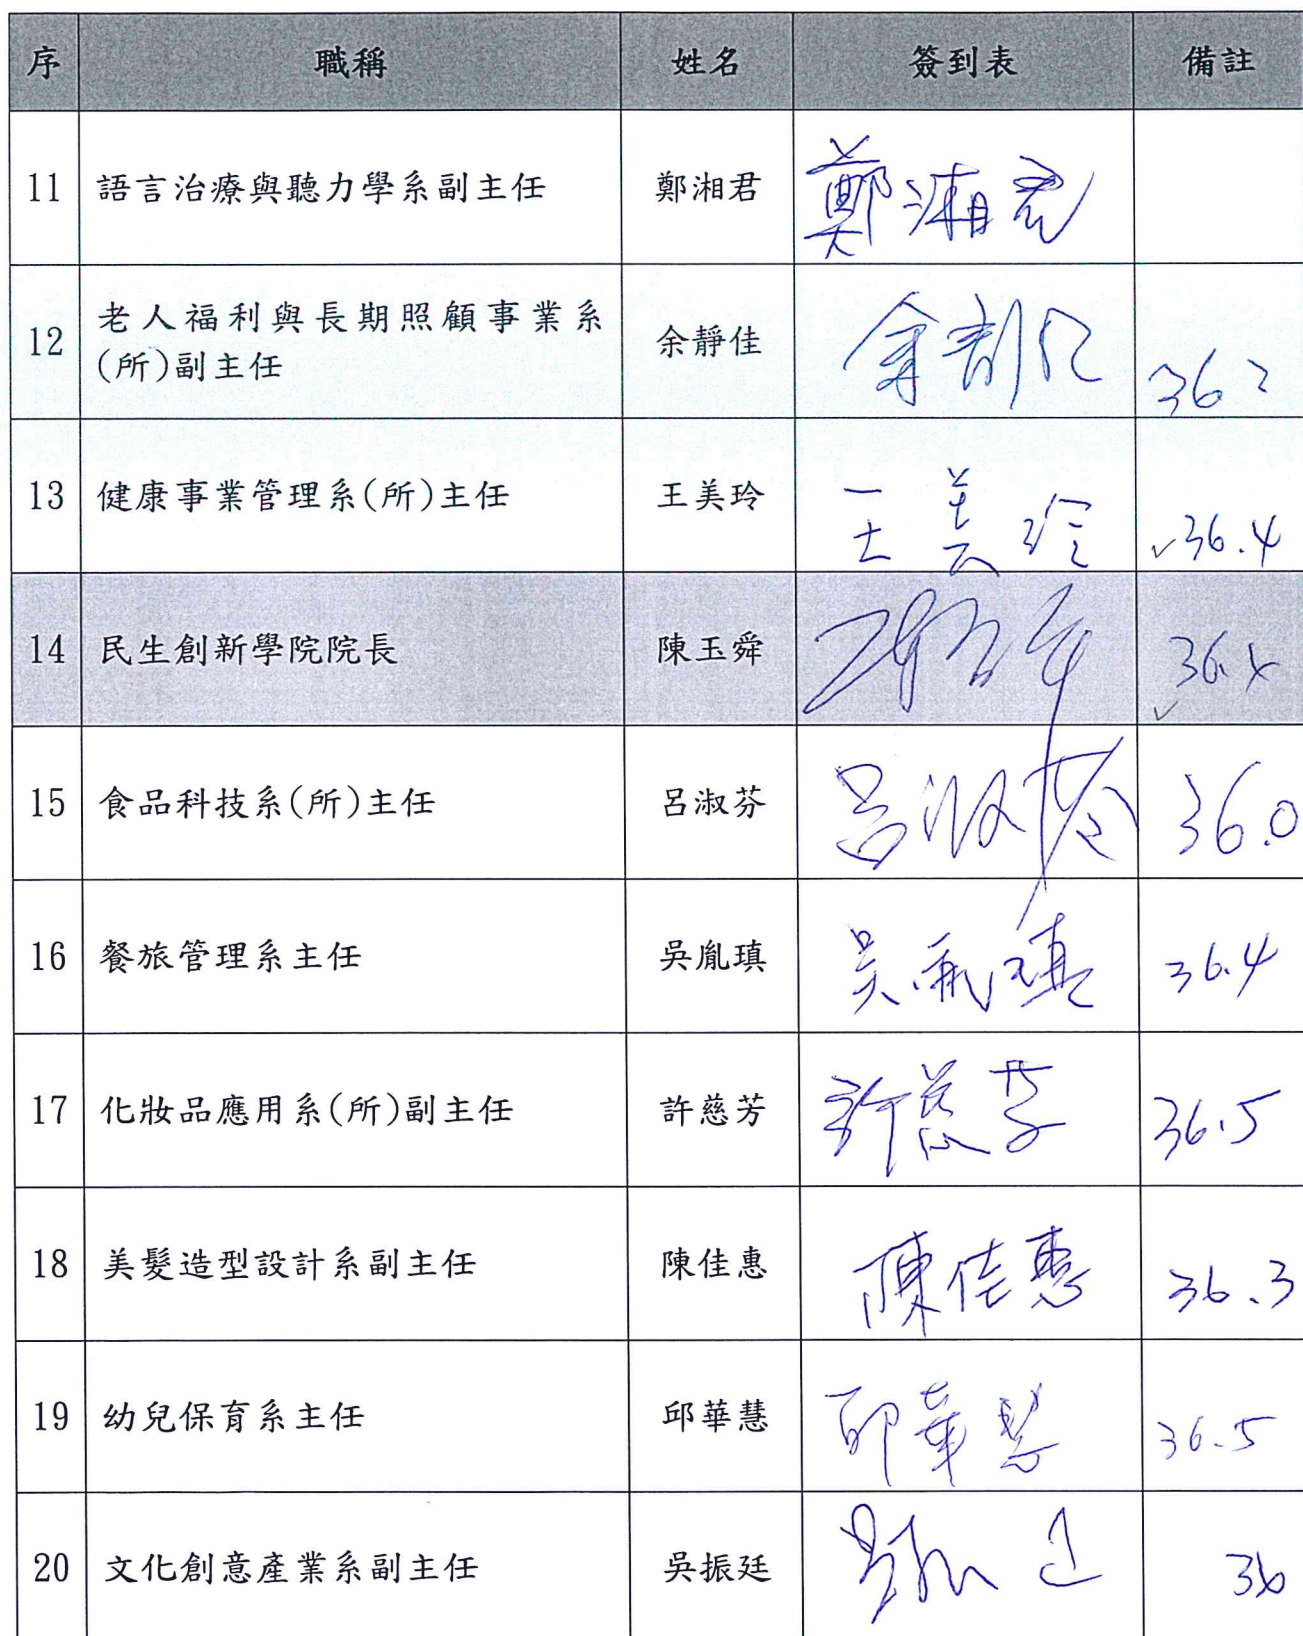 序 職稱 姓名 簽到表 備註
11 語言治療與聽力學系副主任 鄭湘君 鄭湘君
12 老人福利與長期照顧事業系
(所)副主任 余靜佳 36.2
13 健康事業管理系(所)主任 王美玲 王美玲 ✓36.4
14 民生創新學院院長 陳玉舜 36.4 ✓
15 食品科技系(所)主任 呂淑芬 呂淑芬 36.0
16 餐旅管理系主任 吳胤瑱 吳胤瑱 36.4
17 化妝品應用系(所)副主任 許慈芳 許慈芳 36.5
18 美髮造型設計系副主任 陳佳惠 陳佳惠 36.3
19 幼兒保育系主任 邱華慧 邱華慧 36.5
20 文化創意產業系副主任 吳振廷 36